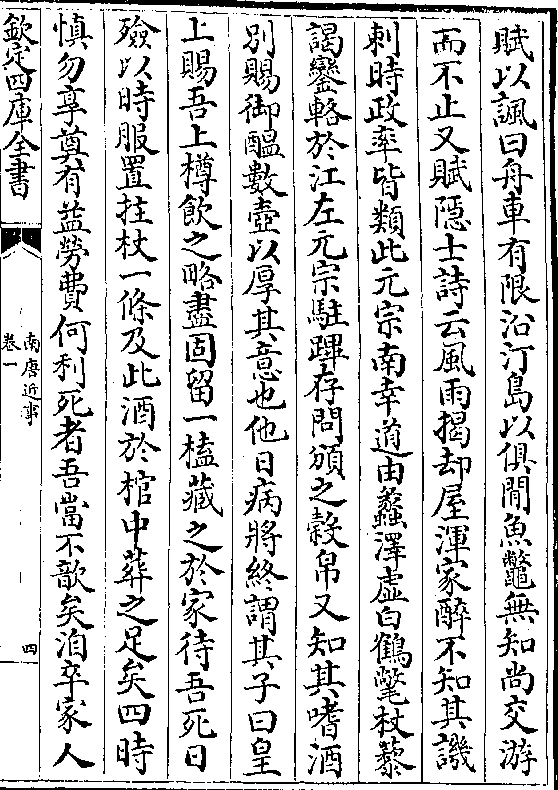 賦以諷曰舟車有限沿汀島以俱閒魚鼈無知尚交游
而不止又賦隠士詩云風雨掲却屋渾家醉不知其譏
刺時政率皆類此元宗南幸道由蠡澤虛白鶴氅杖藜
謁鑾輅於江左元宗駐蹕存問頒之穀帛又知其嗜酒
別賜御醖數壺以厚其意也他日病將終謂其子曰皇
上賜吾上樽飲之略盡固留一榼藏之於家待吾死日
殮以時服置拄杖一條及此酒於棺中葬之足矣四時
慎勿享奠有益勞費何利死者吾當不歆矣洎卒家人
欽定四庫全書
南唐近事
卷一
四